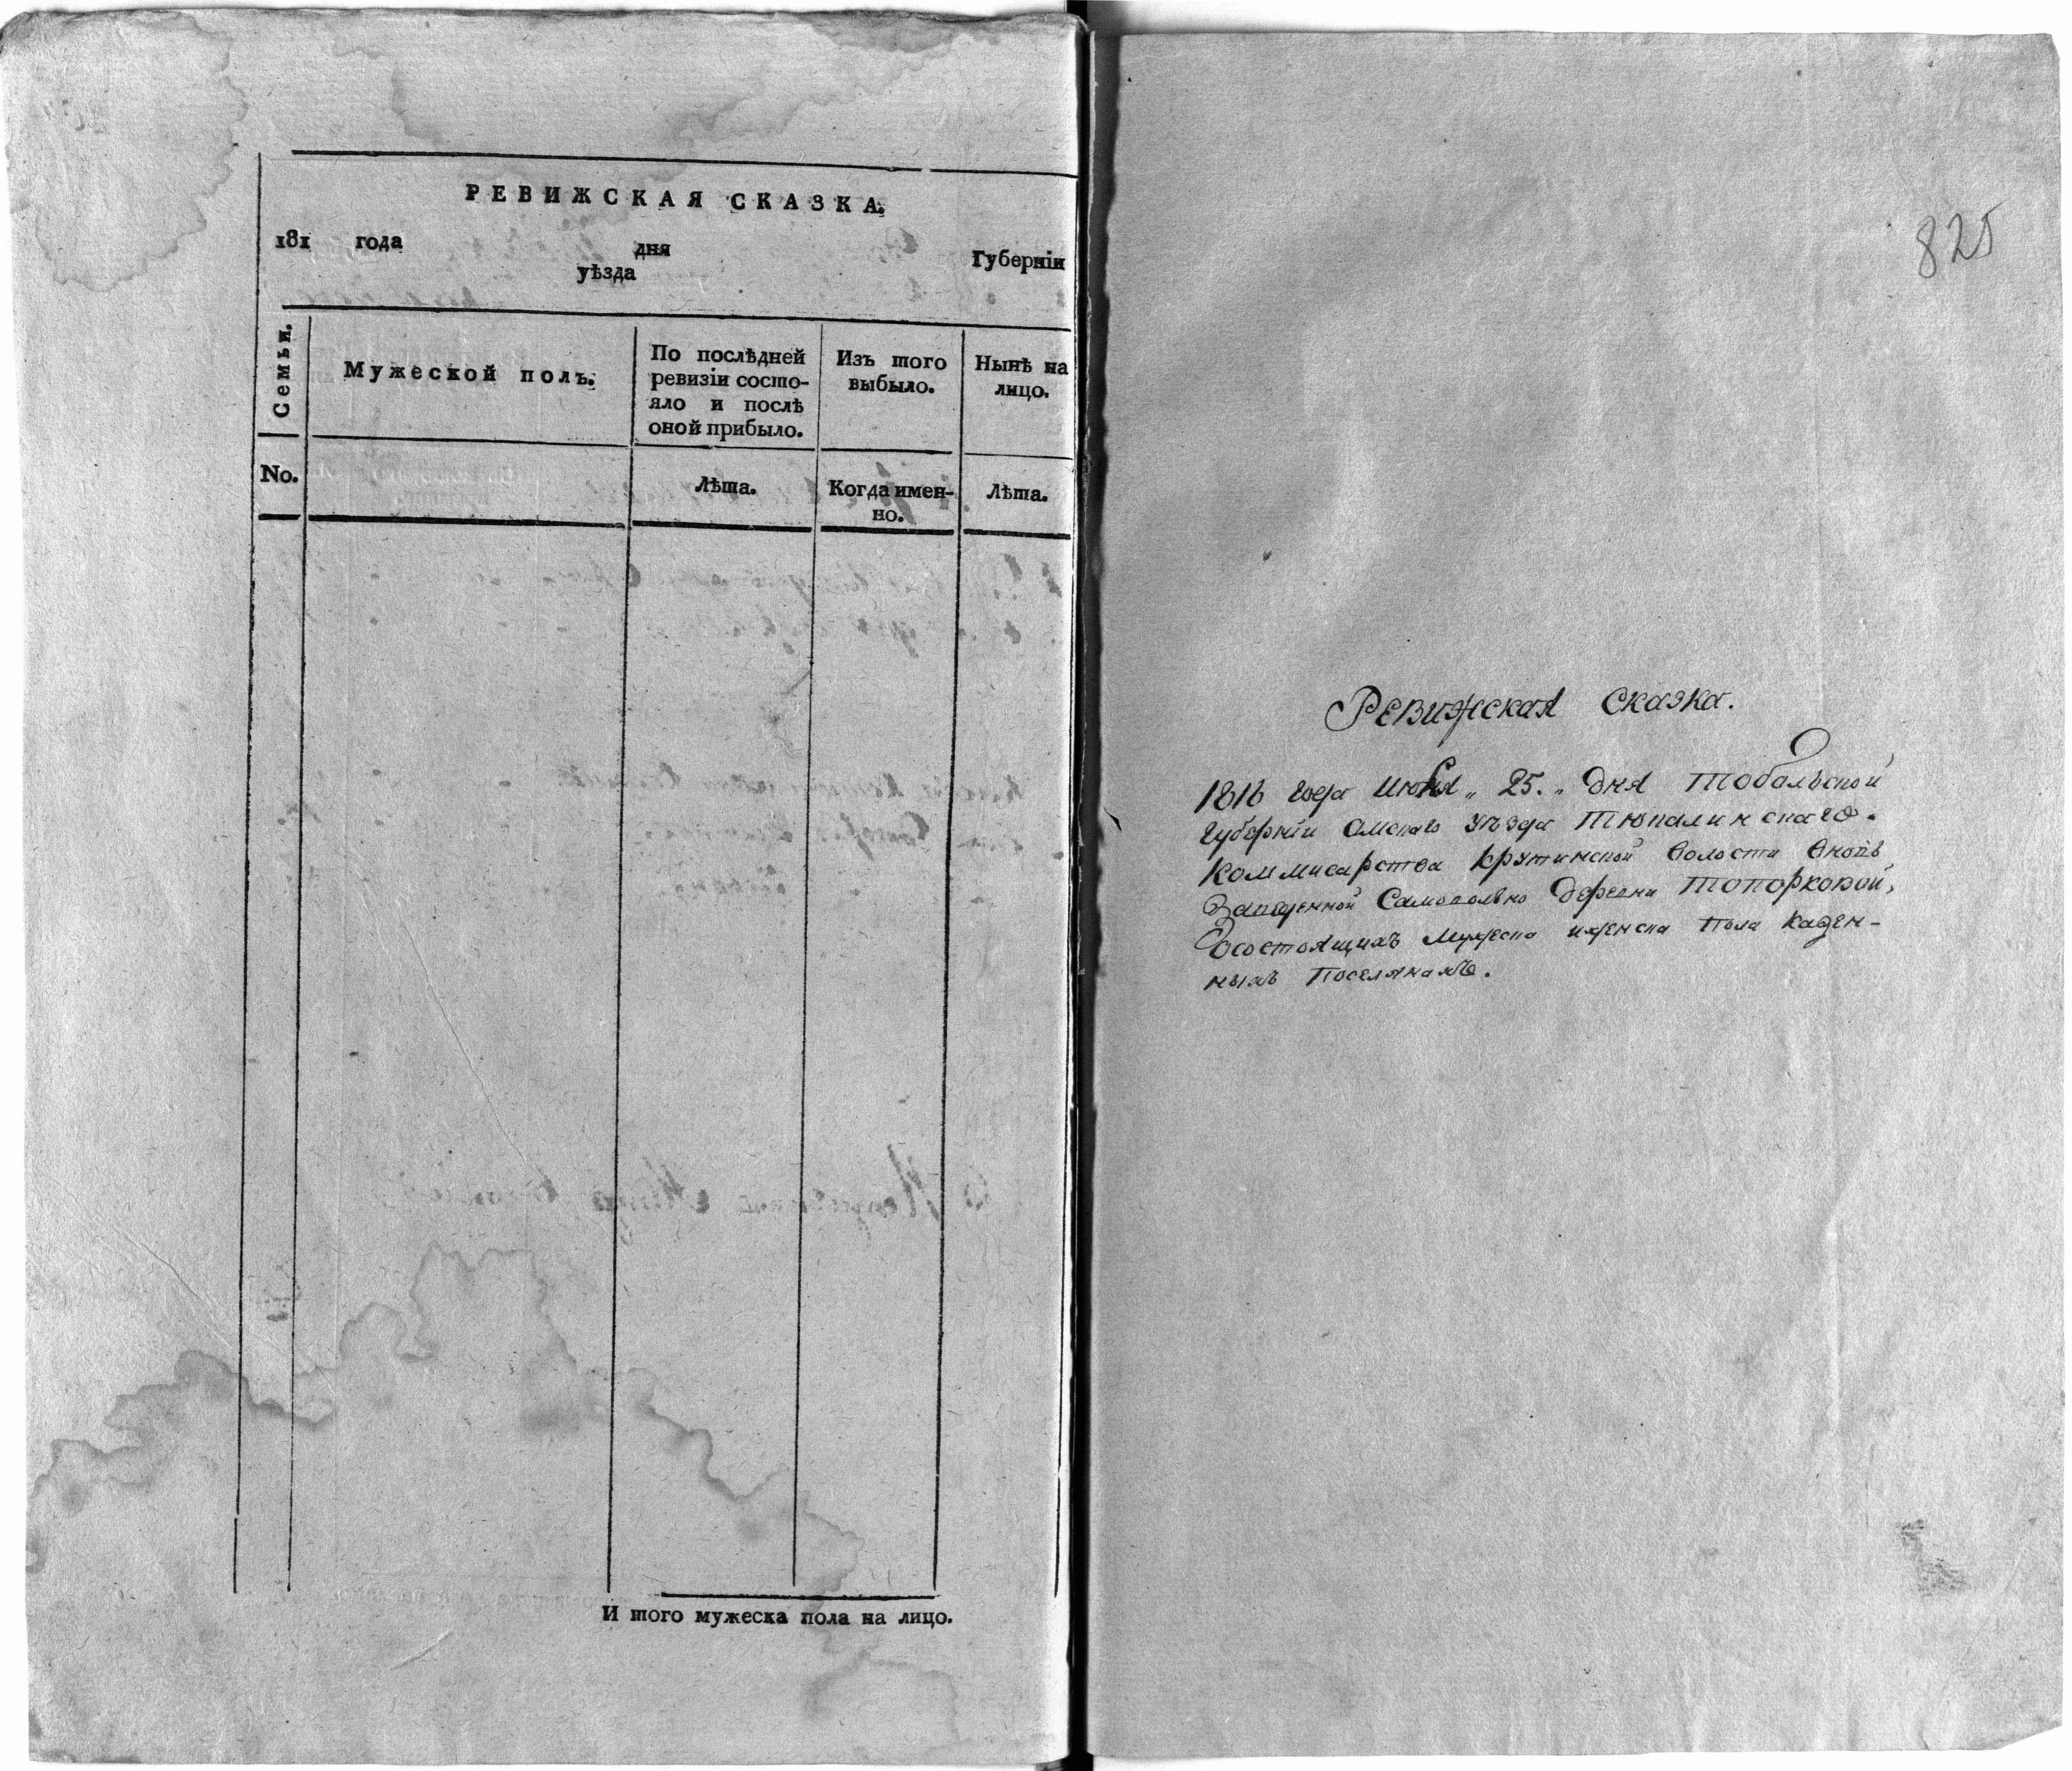 РЕВИЖСКАЯ СКАЗКА.
181 года дня Губерніи
уѣзда
Семьи.
Мужеской полъ.
По послѣдней
ревизіи состо-
яло и послѣ
оной прибыло.
Изъ того
выбыло.
Нынѣ на
лицо.
No.
Лѣта.
Когда имен-
но.
Лѣта.
И того мужеска пола на лицо.
825
Ревижская Сказка.
1816 года Июня „ 25. „ дня Тобольской
Губернїи Омскаго Уѣзда Тюкалинскаго
Коммисарства Крутинской волости вновь
Заведенной Самовольно деревни Топорковой,
Осостоящихъ Мужеска иженска пола Казен-
ныхъ Поселянахъ.